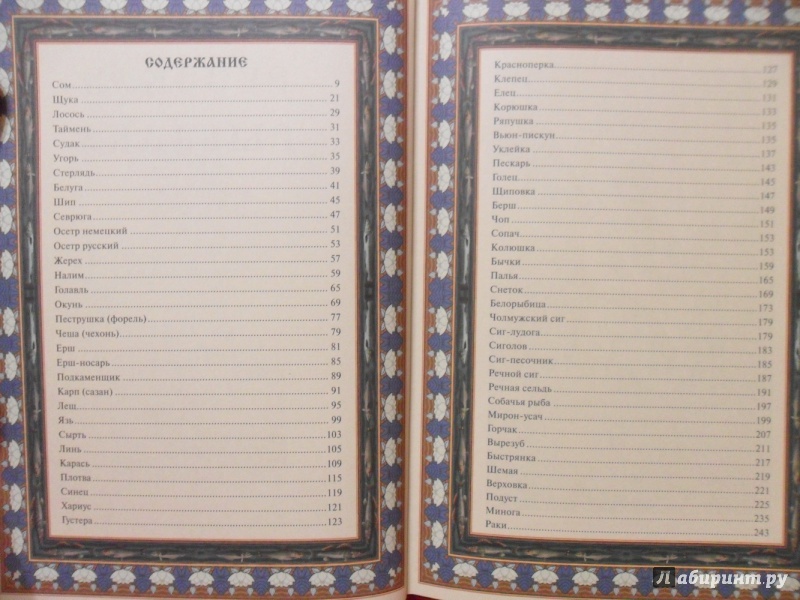 СОДЕРЖАНИЕ
Сом 9
Щука 21
Лосось 29
Таймень 31
Судак 33
Угорь 35
Стерлядь 39
Белуга 41
Шип 45
Севрюга 47
Осетр немецкий 51
Осетр русский 53
Жерех 57
Налим 59
Голавль 65
Окунь 69
Пеструшка (форель) 77
Чеша (чехонь) 79
Ерш 81
Ерш-носарь 85
Подкаменщик 89
Карп (сазан) 91
Лещ 95
Язь 99
Сырть 103
Линь 105
Карась 109
Плотва 115
Синец 119
Хариус 121
Густера 123
Красноперка 127
Клепец 129
Елец 131
Корюшка 133
Ряпушка 135
Вьюн-пискун 135
Уклейка 137
Пескарь 143
Голец 145
Щиповка 147
Берш 149
Чоп 151
Сопач 153
Колюшка 153
Бычки 159
Палья 165
Снеток 169
Белорыбица 173
Чолмужский сиг 179
Сиг-лудога 179
Сиголов 183
Сиг-песочник 185
Речной сиг 187
Речная сельдь 191
Собачья рыба 197
Мирон-усач 199
Горчак 207
Вырезуб 211
Быстрянка 217
Шемая 219
Верховка 221
Подуст 225
Минога 235
Раки 243
Лабиринт.ру